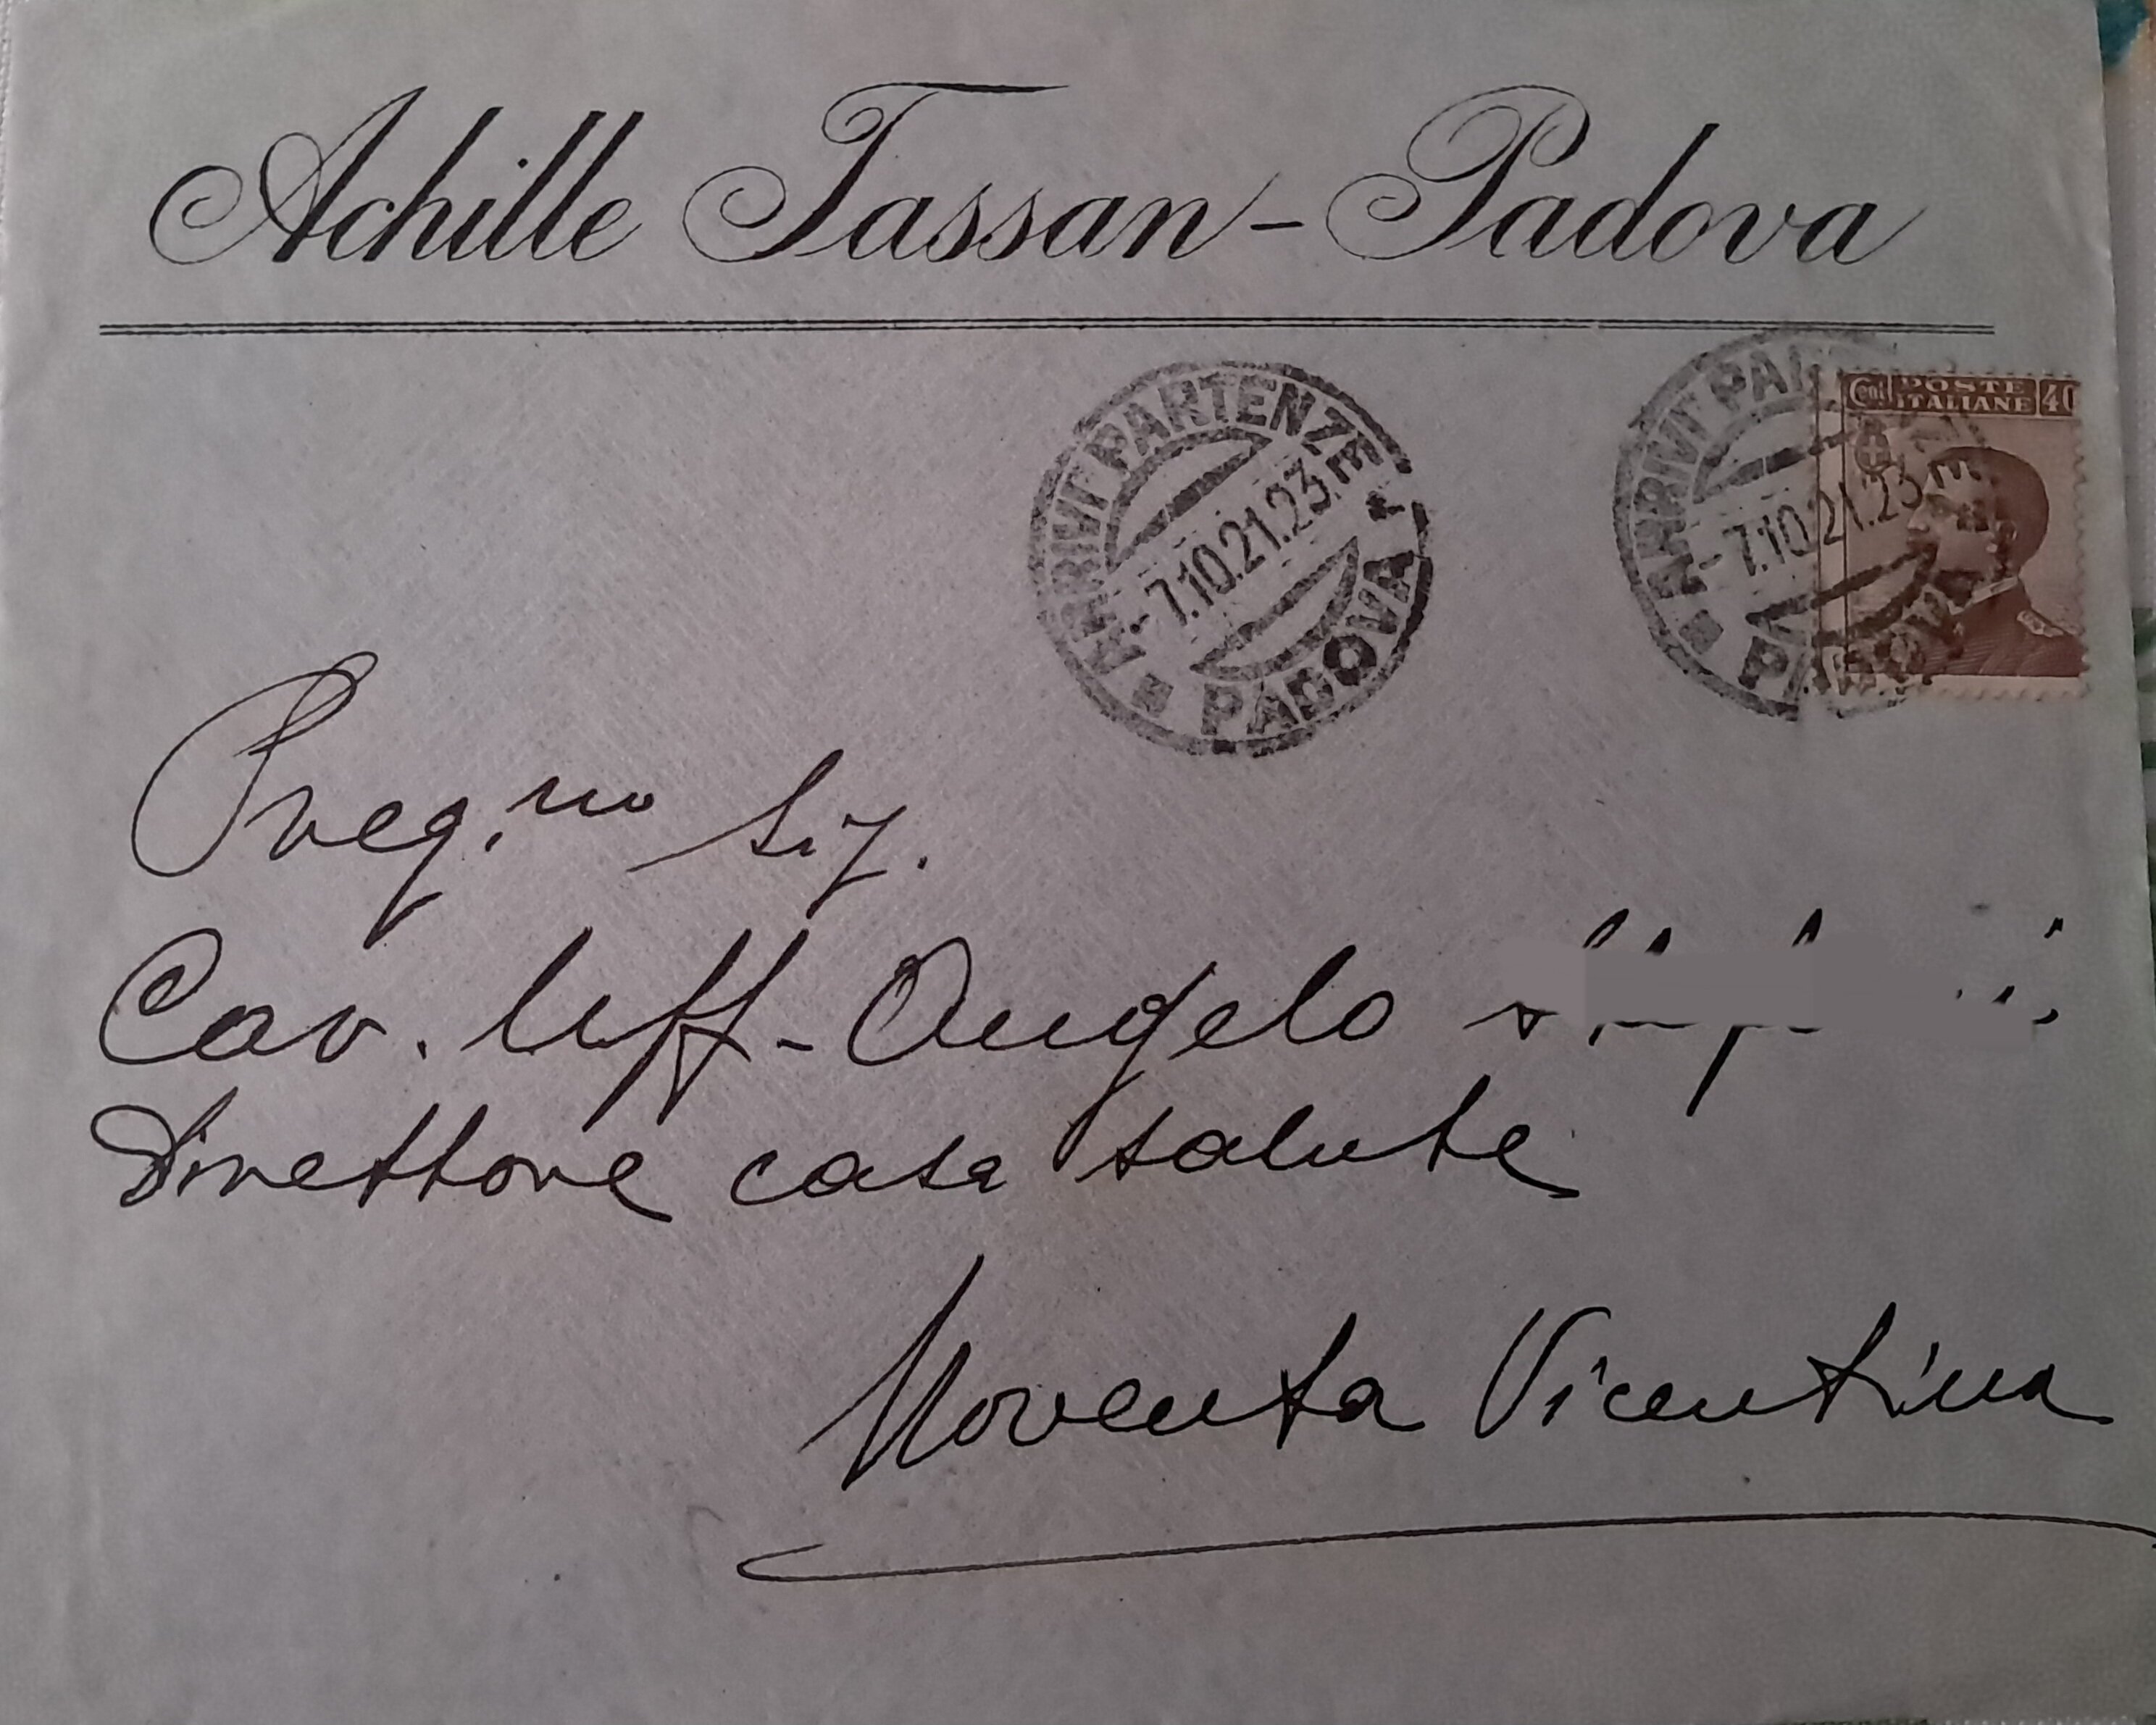 Achille Tassan - Padova
ARRIVI PARTENZE
-7.10.21.23.E
* PADOVA
ARRIVI PAR
-7.10.21.23
Cent POSTE ITALIANE 40
Preg.mo Sig.
Cav. Uff- Angelo
Direttore casa salute
Noventa Vicentina